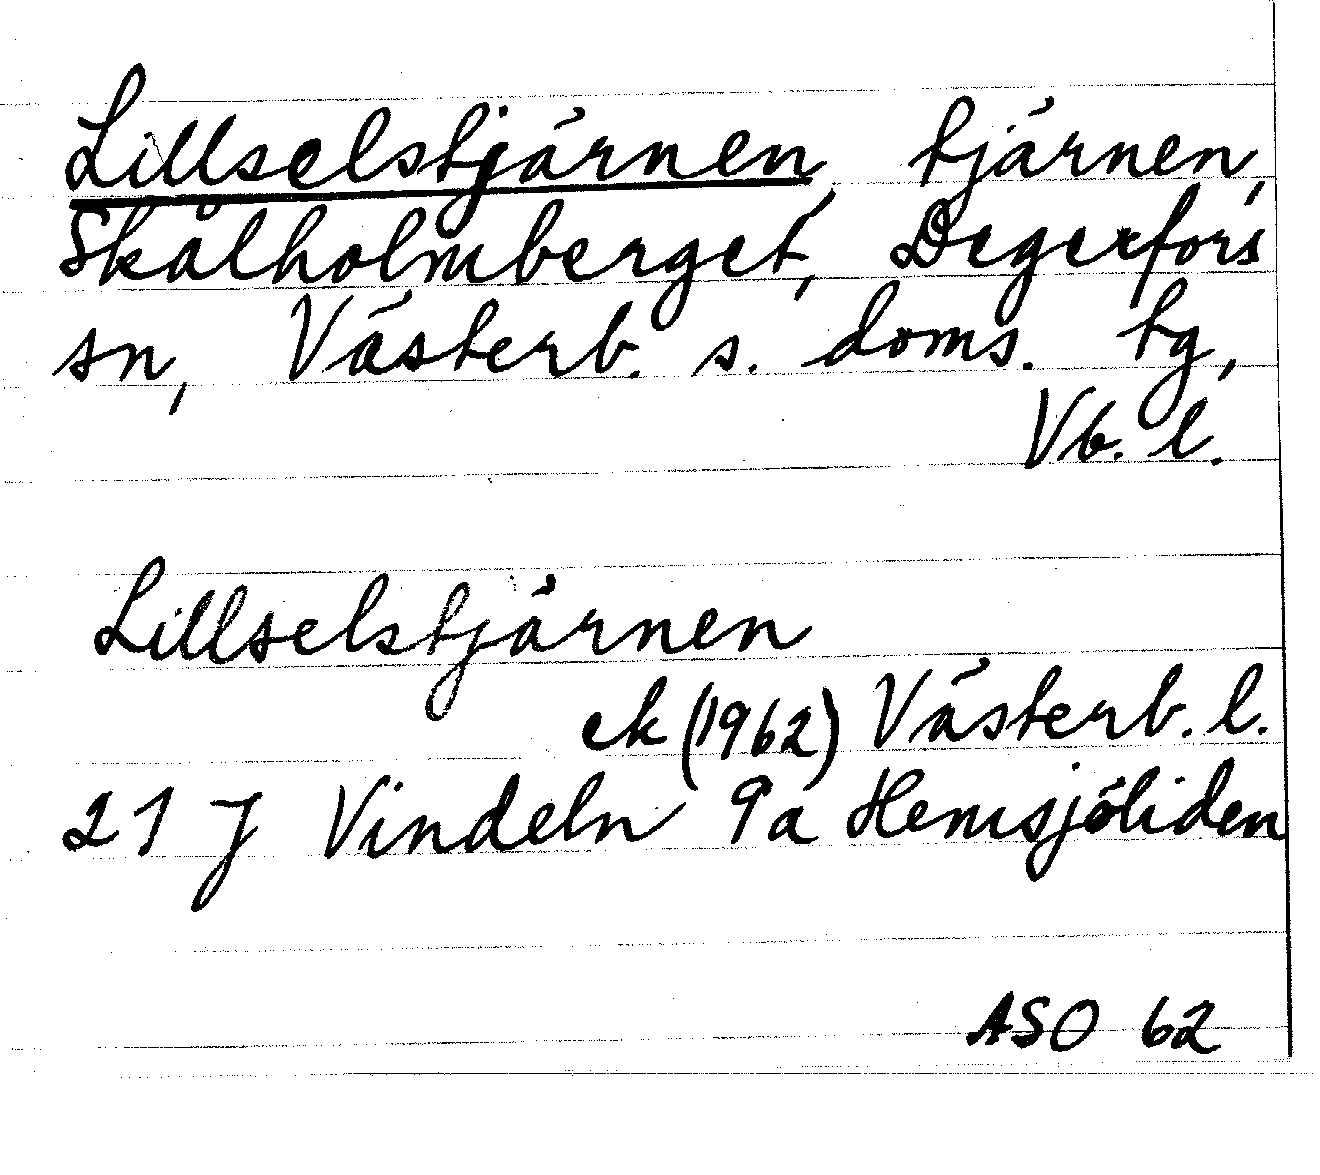 Lillselstjärnen, tjärnen,
Skålholmberget, Degerfors
sn, Västerb. s. doms. tg,
Vb. l.
Lillselstjärnen
ek (1962) Västerb. l.
21 J Vindeln 9a Hemsjöliden
ASO 62